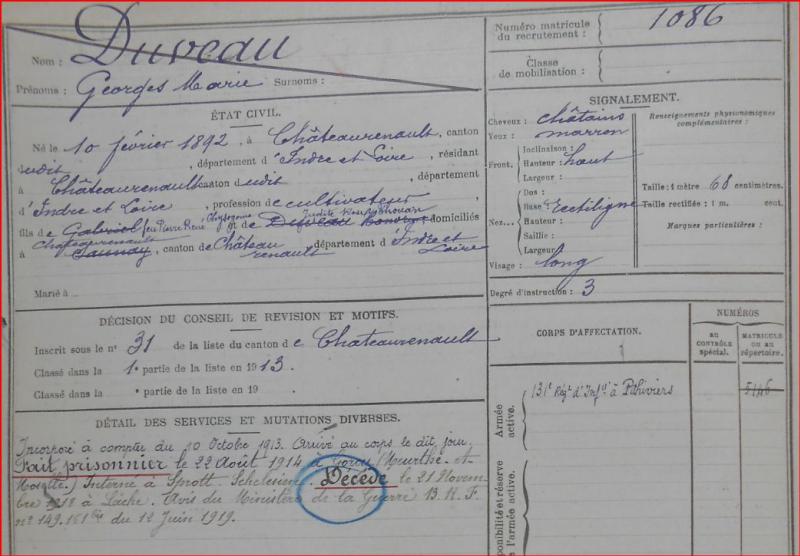 Nom : Duveau
Prénoms : Georges Marie Surnoms :
Numéro matricule du recrutement : 1086
Classe de mobilisation :
ÉTAT CIVIL.
Né le 10 février 1892, à Châteaurenault, canton
dudit, département d'Indre et Loire, résidant
à Châteaurenault canton dudit, département
d'Indre et Loire, profession de cultivateur
fils de Gabriel feu Pierre René et de Duveau Judith domiciliés
à Châteaurenault Saunay, canton de Château renault, département d'Indre et Loire
Marié à
SIGNALEMENT.
Cheveux : châtains
Yeux : marron
Front. Inclinaison :
Hauteur : haut
Largeur :
Nez... Dos :
Base rectiligne
Hauteur :
Saillie :
Largeur
Visage : long
Renseignements physionomiques complémentaires :
Taille : 1 mètre 68 centimètres.
Taille rectifiée : 1 m. cent.
Marques particulières :
Degré d'instruction : 3
DÉCISION DU CONSEIL DE REVISION ET MOTIFS.
Inscrit sous le n° 31 de la liste du canton de Chateaurenault
Classé dans la 1e partie de la liste en 1913.
Classé dans la e partie de la liste en 19
DÉTAIL DES SERVICES ET MUTATIONS DIVERSES.
Incorporé à compter du 10 Octobre 1913. Arrivé au corps le dit jour
Fait prisonnier le 22 Août 1914 à Gorcy (Meurthe et
Moselle) Interné à Sprott. Décédé le 21 Novem
bre 1918 à. Avis du Ministère de la Guerre B.R.F.
n° 149.161bis du 12 Juin 1919.
CORPS D'AFFECTATION.
NUMÉROS
AU CONTRÔLE spécial.
MATRICULE OU AU répertoire.
Armée active.
131e Régt d'Infie à Pithiviers
5146
ponibilité et réserve
e l'armée active.